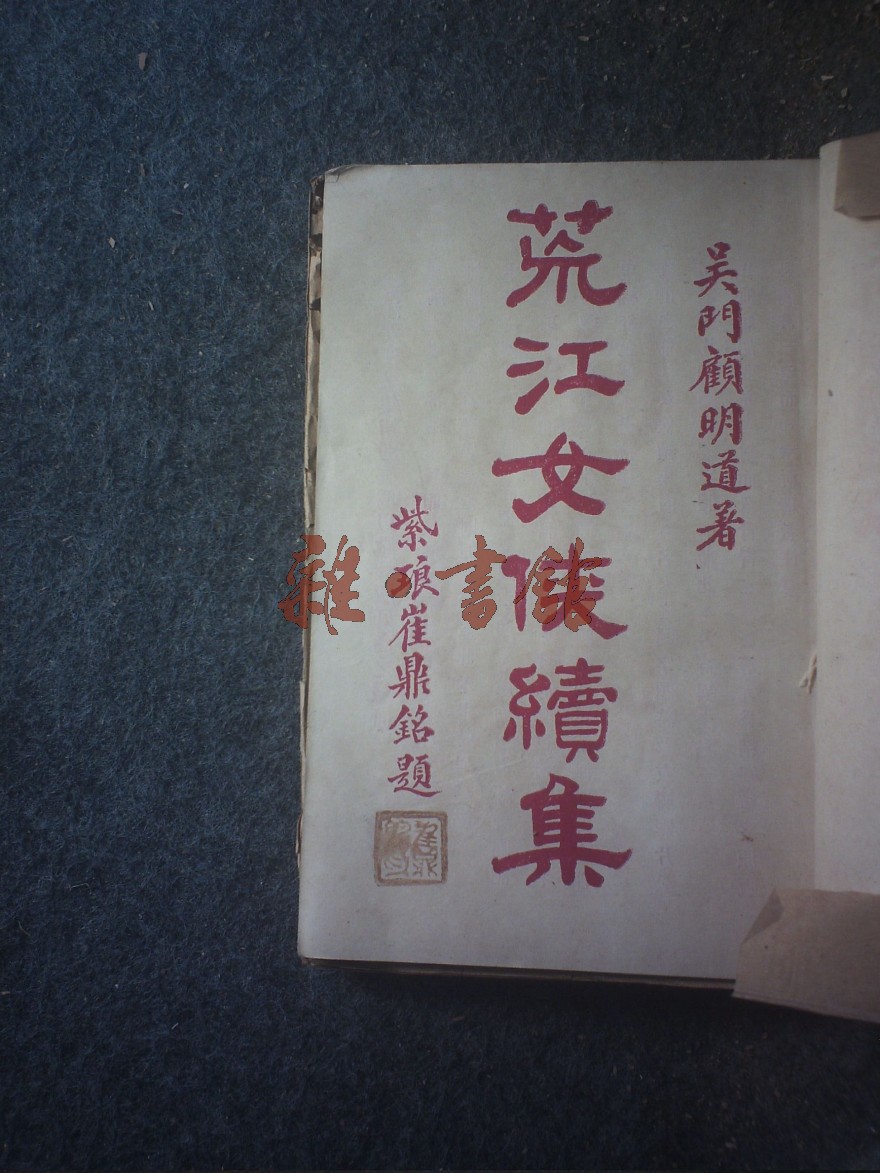 吴門顧明道著
荒江女俠續集
紫琅崔鼎銘題
雜·書館